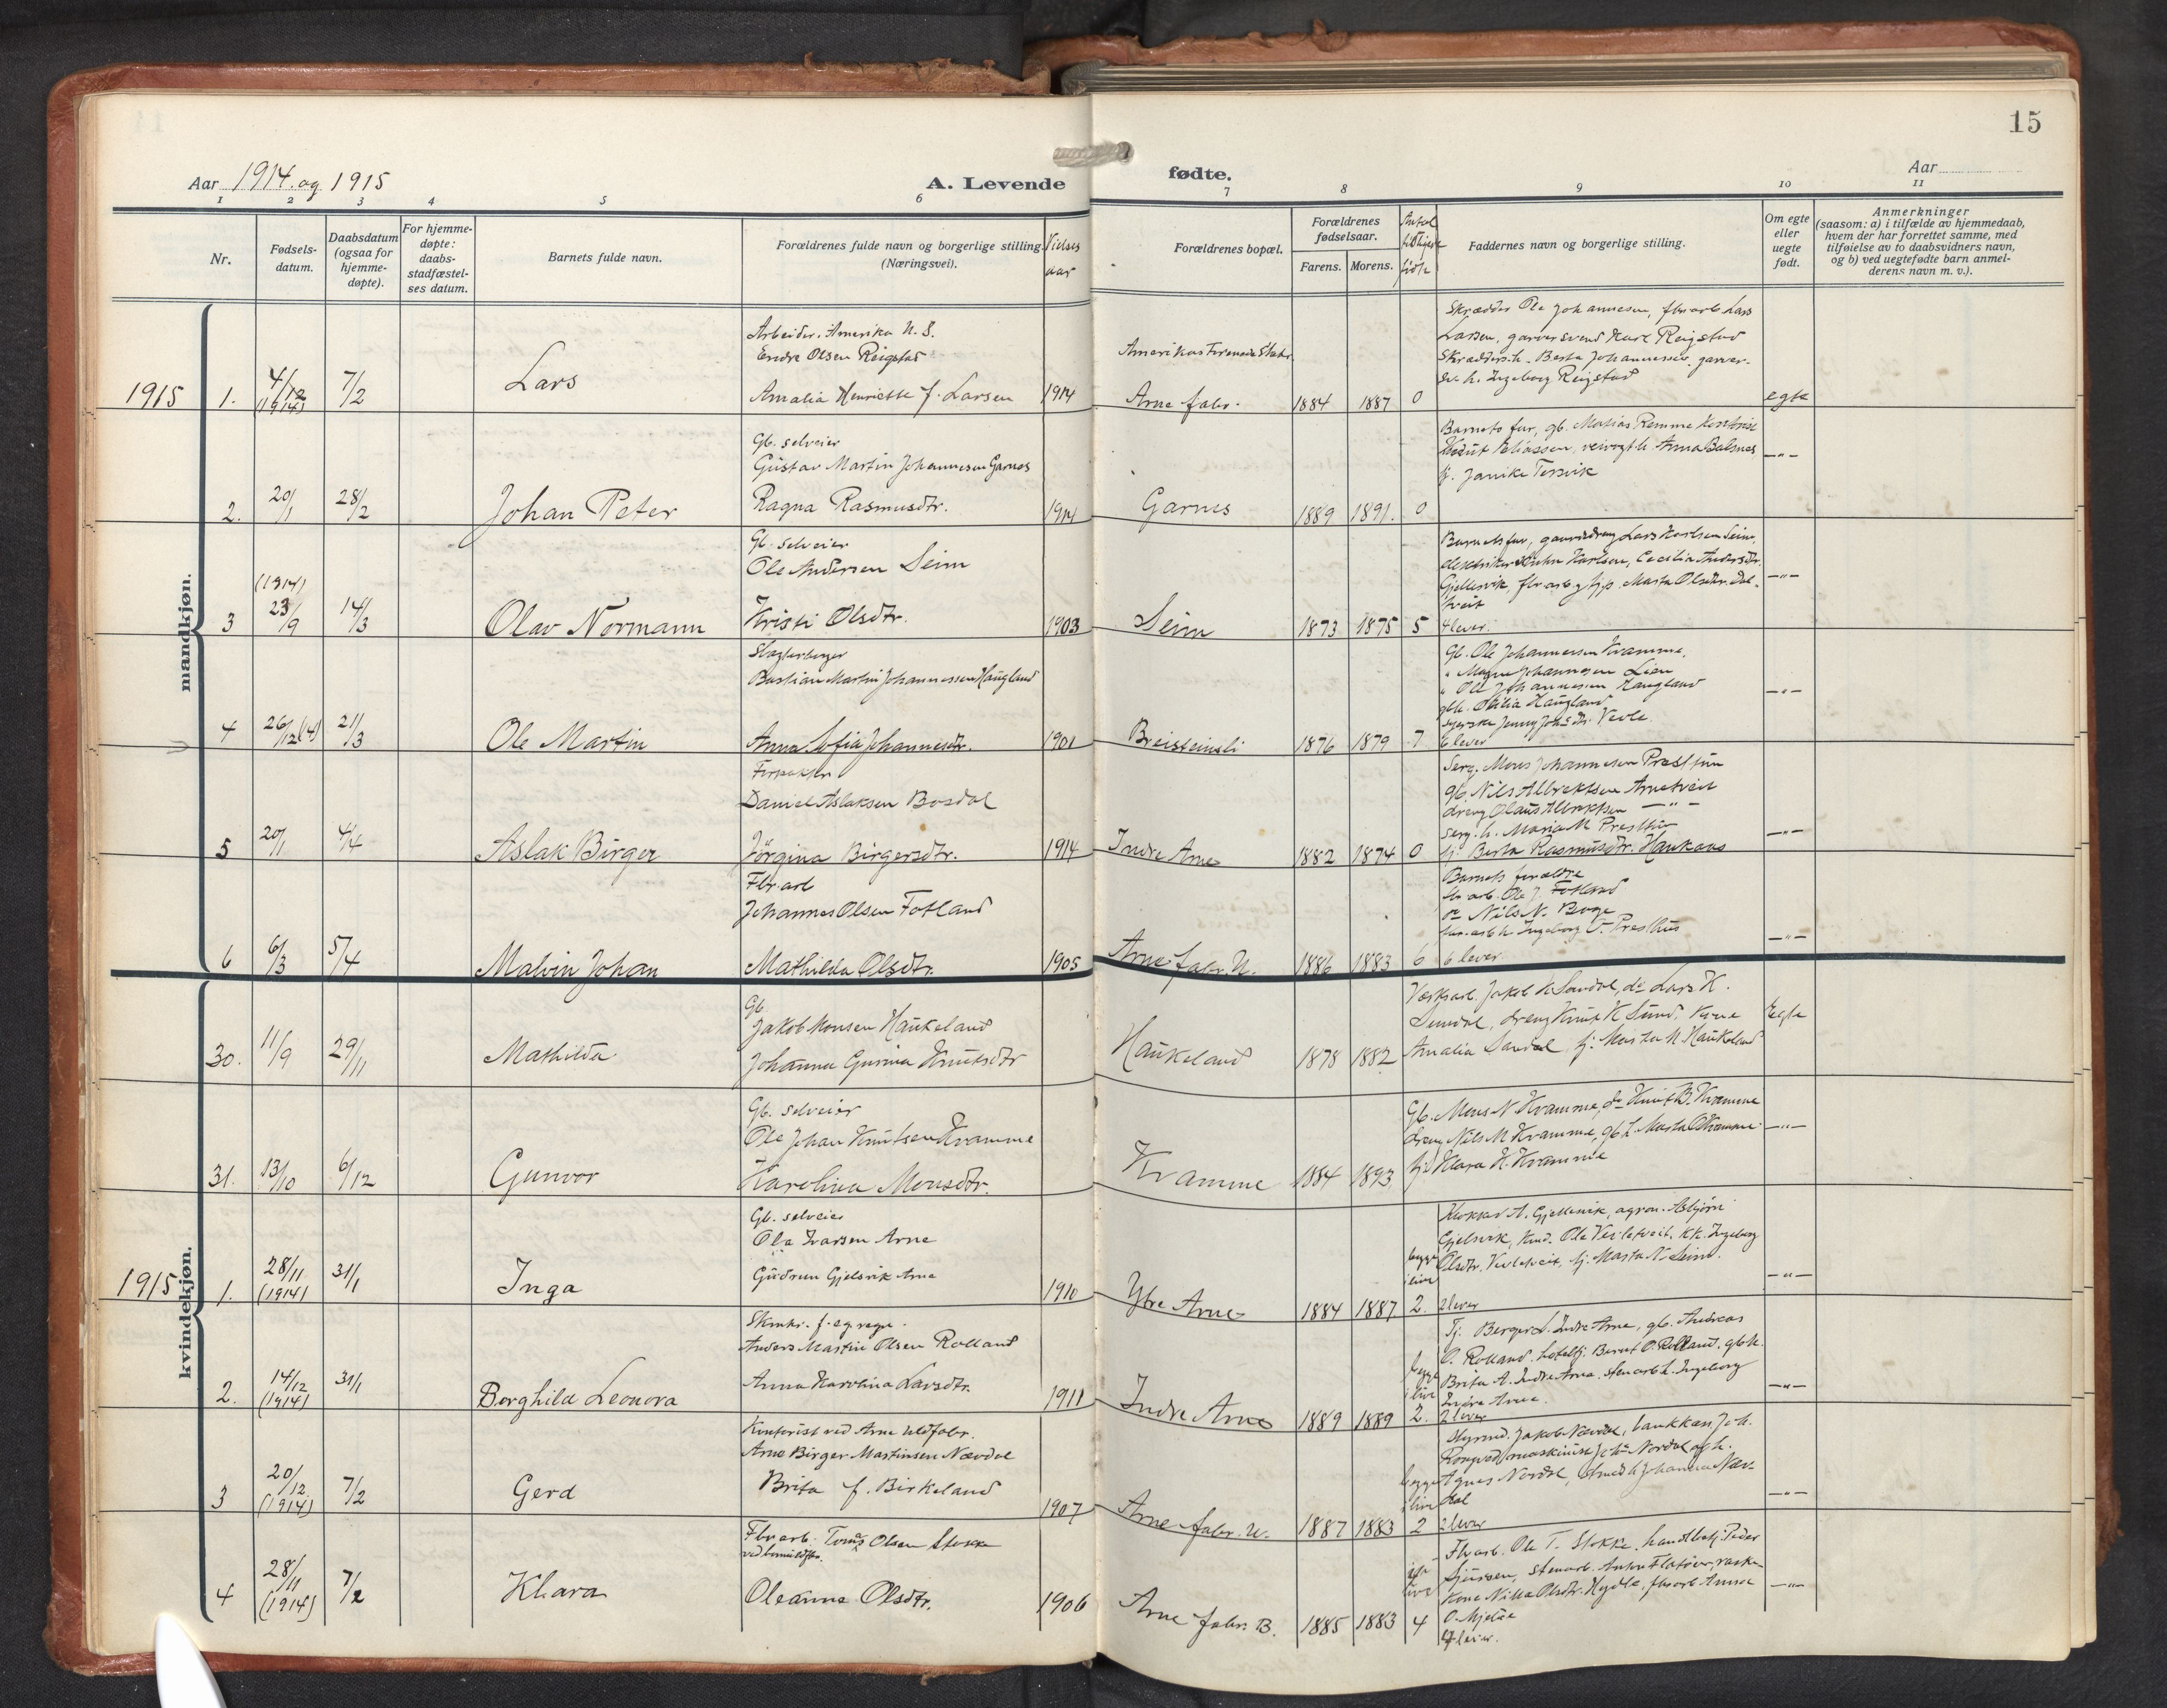 15
Aar 1914 og 1915
A. Levende fødte.
Aar
1 2 3 4 5 6 7 8 9 10 11
Nr.
Fødsels-
datum.
Daabsdatum
(ogsaa for
hjemme-
døpte).
For hjemme-
døpte:
daabs-
stadfæstel-
ses datum.
Barnets fulde navn.
Forældrenes fulde navn og borgerlige stilling.
(Næringsvei).
Vielses
aar
Forældrenes bopæl.
Forældrenes
fødselsaar.
Farens. Morens.
Antal
født
Faddernes navn og borgerlige stilling.
Om egte
eller
uegte
født.
Anmerkninger
(saasom: a) i tilfælde av hjemmedaab,
hvem der har forrettet samme, med
tilføielse av to daabsvidners navn,
og b) ved uegtefødte barn anmel-
derens navn m. v.).
mandkjøn.
1915 1. 4/12 (1914) 7/2
Lars
Arbeider, Amerika N. S.
Endre Olsen Reigstad
Amalia Henriette f. Larsen 1914
Amerikas Forenede Stater
Arne fabr. 1884 1887 0
Skrædder Ole Johannesen, fbrarb Lars
Larsen, garversvend Karl Reigstad
Skrædderh. Berta Johannessen, garver-
sv. h. Ingeborg Reigstad
egte
2. 20/1 28/2
Johan Peter
Gb. selveier
Gustav Martin Johannesen Garnes
Ragna Rasmusdtr. 1914
Garnes 1889 1891. 0
Barnets far, gb. Matias Remme
Knut Eliassen, Anna Balsnes,
Janike
—"—
3 (1914) 23/9 14/3
Olav Normann
Gb. selveier
Ole Andersen Seim
Kristi Olsdtr. 1903
Seim 1873 1875 5
Barnets far, gaardsdreng Lars Karlsen Seim,
elektriker Karlsen, Cecilia Andersdtr.
Gjellesvik, Marta Olsdtr. Dal-
tveit
4 lever.
—"—
4 26/12 (14) 21/3
Ole Martin
Bastian Martin Johannessen Haugland
Anna Sofia Johannesdtr. 1901
Breisteinsli 1876 1879 7
Gb. Ole Johannessen Kvamme,
" Magne Johannesen Lien
" Ole Johannesen Haugland
gbh. Haugland
syerske Jenny Johsdtr. Vevle
6 lever
—"—
5 20/1 4/4
Aslak Birger
Forpakter
Daniel Aslaksen Bosdal
Jörgina Birgersdtr. 1914
Indre Arne 1882 1874 0
Serg. Mons Johannesen Presthun
gb. Nils Albrektsen Arnetveit
dreng Olaus Albrektsen —"—
serg. h. Maria M Presthun
Berta Rasmusdtr. Haukaas
—"—
6 6/3 5/4
Malvin Johan
Fbr. arb
Johannes Olsen Fotland
Mathilda Olsdtr. 1905
Arne fabr. U. 1886 1883 6
Barnets forældre
fbr arb. Ole J. Fotland
do Nils N. Boge
fbr. arb h Ingeborg O. Presthus
6 lever
—"—
kvindekjøn.
30. 11/9 29/11
Mathilda
Gb.
Jakob Monsen Haukeland
Johanna Gurina Knutsdtr
Haukeland 1878 1882
Værksarb. Jakob K Sundal, do Lars K.
Sundal, dreng Knut K Sund. Kone
Amalia Sundal, Marta M. Haukeland
Egte
31. 13/10 6/12
Gunvor
Gb. selveier
Ole Johan Knutsen Kvamme
Karolina Monsdtr.
Kvamme 1884 1893
Gb. Mons N Kvamme, do Knut B. Kvamme
dreng Nils M Kvamme, gb h. Marta O Kvamme
Klara K. Kvamme
—"—
1915 1. 28/11 (1914) 31/1
Inga
Gb. selveier
Ola Ivarsen Arne
Gudrun Gjelsvik Arne 1910
Ytre Arne 1884 1887 2.
begge
i live
Klokker A. Gjellesvik, agron. Asbjörn
Gjelsvik, Ole Veiletveit, KK. Ingeborg
Olsdtr. Marta N. Seim.
2 lever
—"—
2. 14/12 (1914) 31/1
Borghild Leonora
Skmkr. f. eg. regn.
Anders Martin Olsen Rolland
Anna Karolina Larsdtr. 1911
Indre Arne 1889 1889 2.
begge
i live
Indre Arne, gb. Andreas
O. Rolland, Bernt O. Rolland, gbh.
Brita A. Indre Arna. stenarb h. Ingeborg
Indre Arne.
2 lever
—"—
3 20/12 (1914) 7/2
Gerd
Kontorist ved Arne uldfabr.
Arne Birger Martinsen Nævdal
Brita f. Birkeland 1907
Arne fabr. U. 1887 1883 2
begge
i live
Styrmd. Jakob Nævdal, bankkas. Joh.
maskinist Johs Nordal og h.
Agnes Nordal, Johanna Næv-
dal
2 lever
—"—
4 28/11 (1914) 7/2
Klara
Fbrarb. Olsen Stokke
Oleanne Olsdtr. 1906
Arne fabr. B. 1885 1883 4
live
Fbarb. Ole T. Stokke, Peder
Sjursen, stenarb. Anton vaske-
kone Nikka Olsdtr. fbrarb Anna
O. Mjelde
4 lever.
—"—